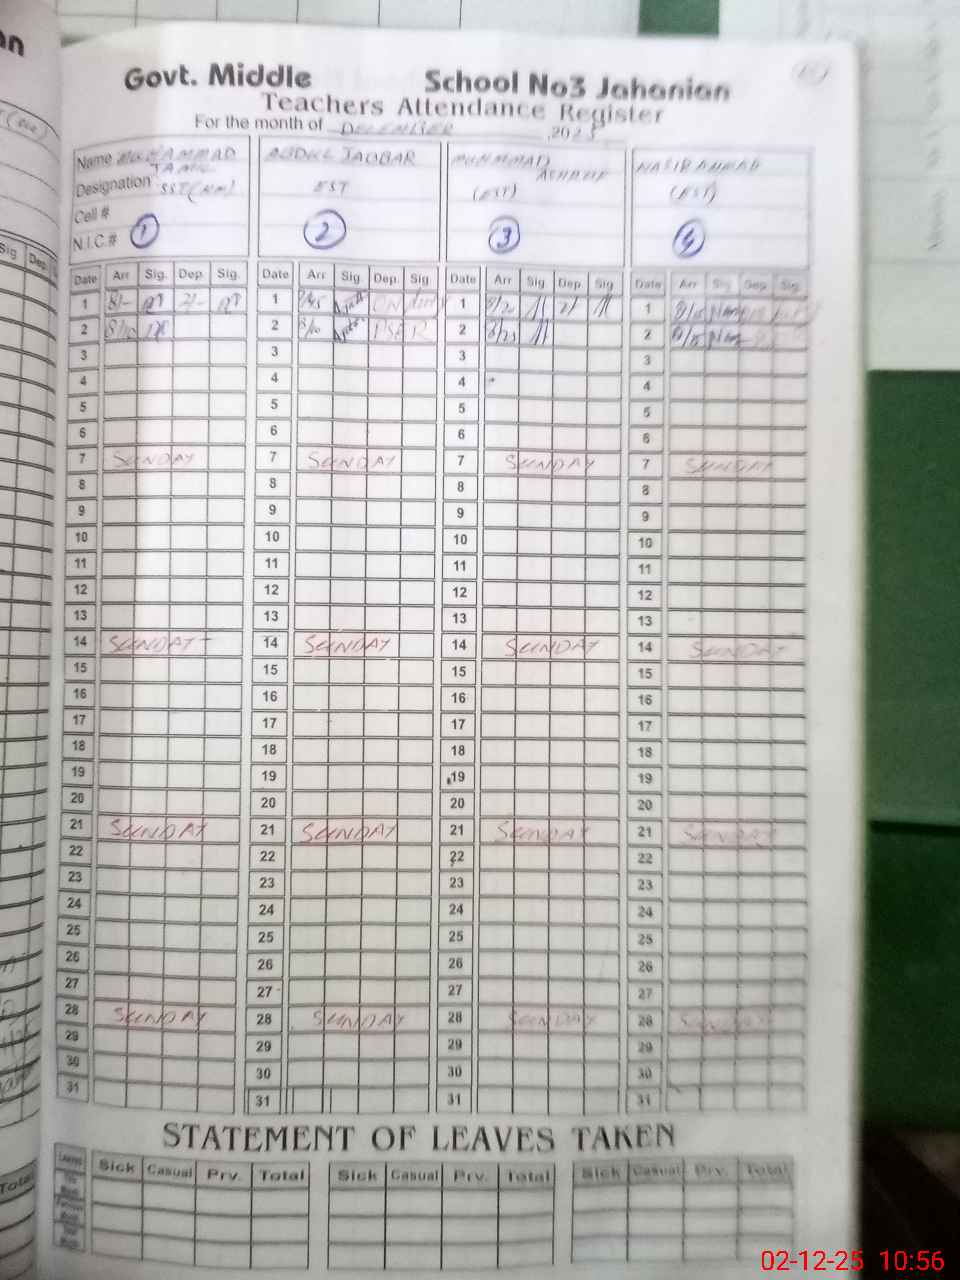 Govt. Middle School No3 Jahanian
Teachers Attendance Register
For the month of DECEMBER, 2025
Name MUHAMMAD JAMIL
Designation SST
Cell #
N.I.C.# 1
ABDUL JABBAR
EST
2
MUHMMAD ASHRAF
(EST)
3
NASIR AHMAD
(EST)
4
Date Arr Sig. Dep. Sig. Date Arr Sig. Dep. Sig Date Arr Sig. Dep. Sig Date Arr Sig Dep. Sig
1 8/- 2/- 1 7/45 ON 1 8/20 2/ 1 8/15
2 8/10 2 8/10 PSER 2 8/23 2 8/15
3 3 3 3
4 4 4 4
5 5 5 5
6 6 6 6
7 SUNDAY 7 SUNDAY 7 SUNDAY 7 SUNDAY
8 8 8 8
9 9 9 9
10 10 10 10
11 11 11 11
12 12 12 12
13 13 13 13
14 SUNDAY 14 SUNDAY 14 SUNDAY 14 SUNDAY
15 15 15 15
16 16 16 16
17 17 17 17
18 18 18 18
19 19 19 19
20 20 20 20
21 SUNDAY 21 SUNDAY 21 SUNDAY 21 SUNDAY
22 22 22 22
23 23 23 23
24 24 24 24
25 25 25 25
26 26 26 26
27 27 27 27
28 SUNDAY 28 SUNDAY 28 SUNDAY 28 SUNDAY
29 29 29 29
30 30 30 30
31 31 31 31
STATEMENT OF LEAVES TAKEN
Leaves Sick Casual Prv. Total Sick Casual Prv. Total Sick Casual Prv. Total
02-12-25 10:56